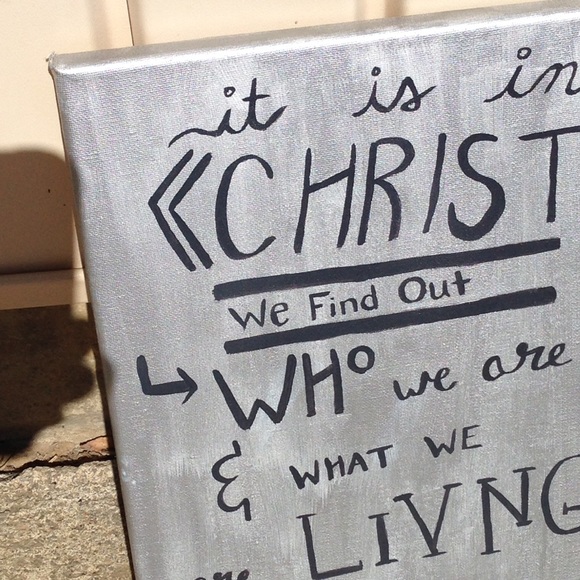 it is in
CHRIST
We Find Out
WHO we are
& WHAT WE
are LIVNG